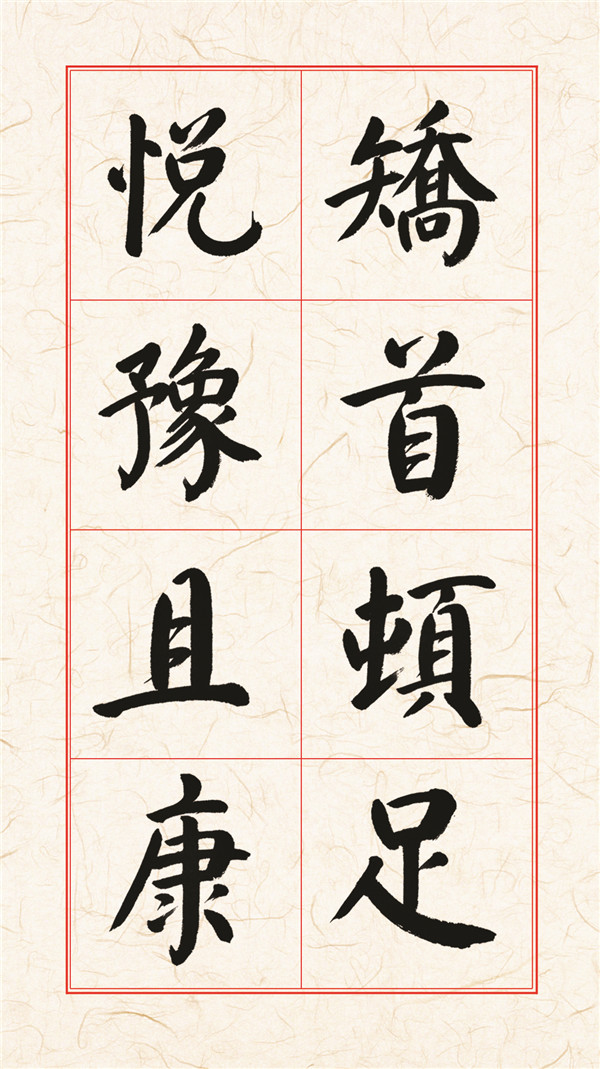 矯首頓足
悅豫且康